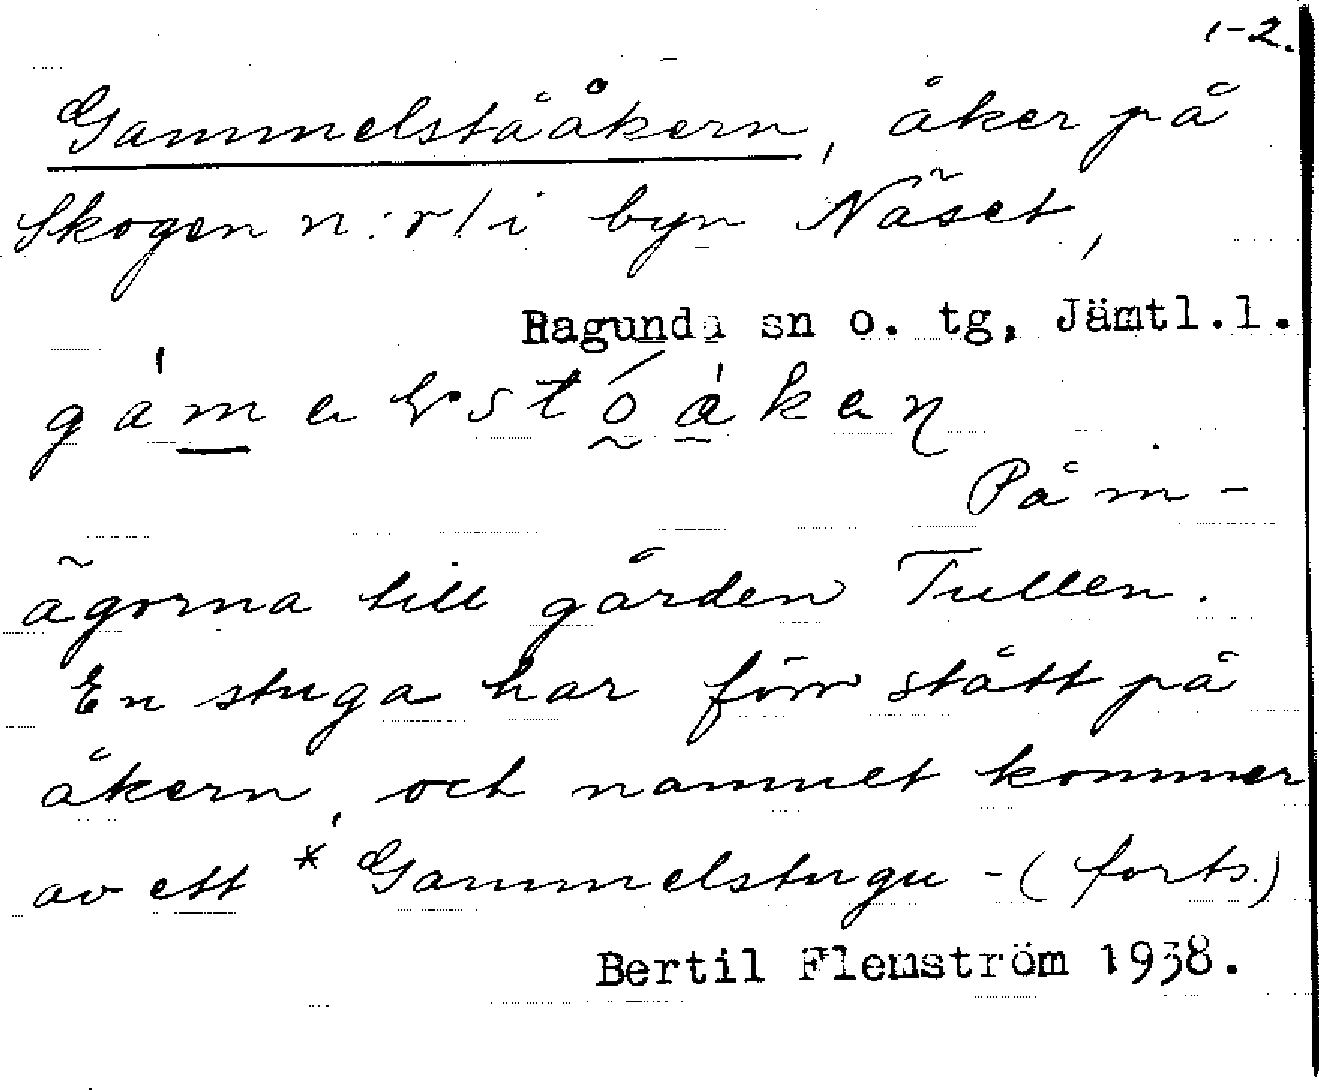 1-2.
Gammelstååkern, åker på
Skogen n:r 1 i byn Näset,
Ragunda sn o. tg, Jämtl.l.
På in-
ägorna till gården Tullen.
En stuga har förr stått på
åkern, och namnet kommer
av ett *Gammelstugu-(forts.)
Bertil Flemström 1938.